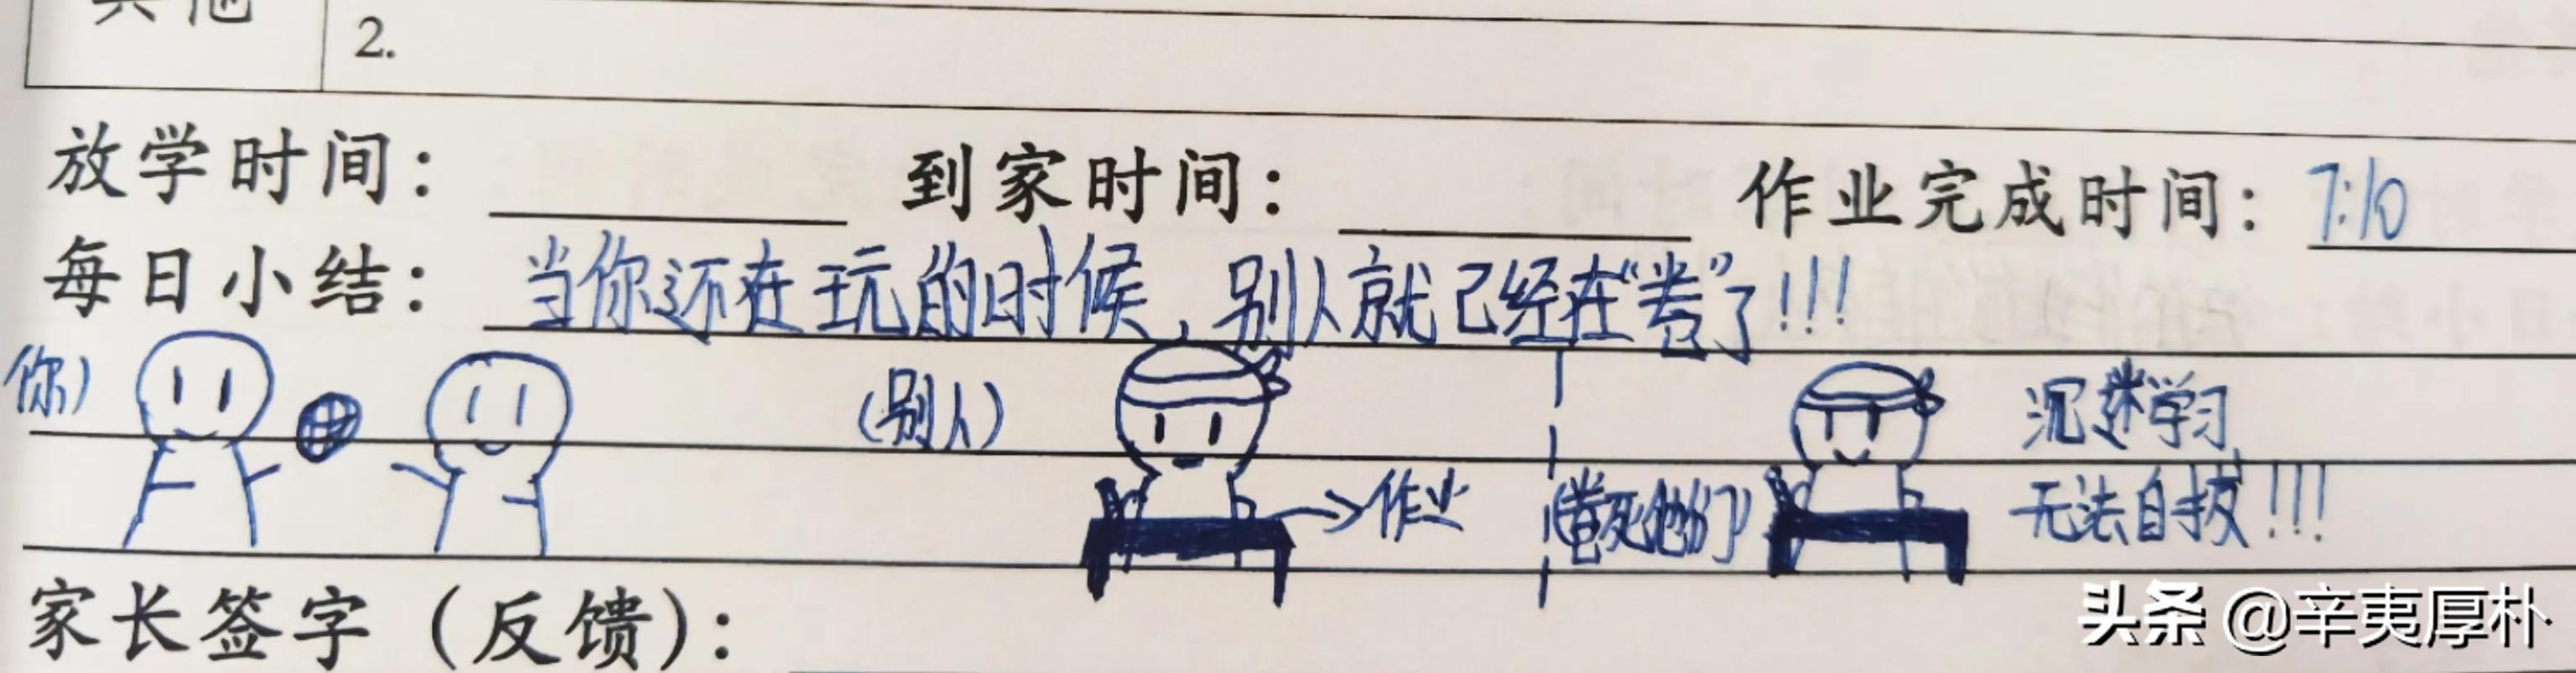 其他
2.
放学时间： 到家时间： 作业完成时间：7:10
每日小结：当你还在玩的时候，别人就已经在“卷”了!!!
你） （别人） 沉迷学习
→作业 （卷死他们） 无法自拔!!!
家长签字（反馈）：
头条 @辛夷厚朴